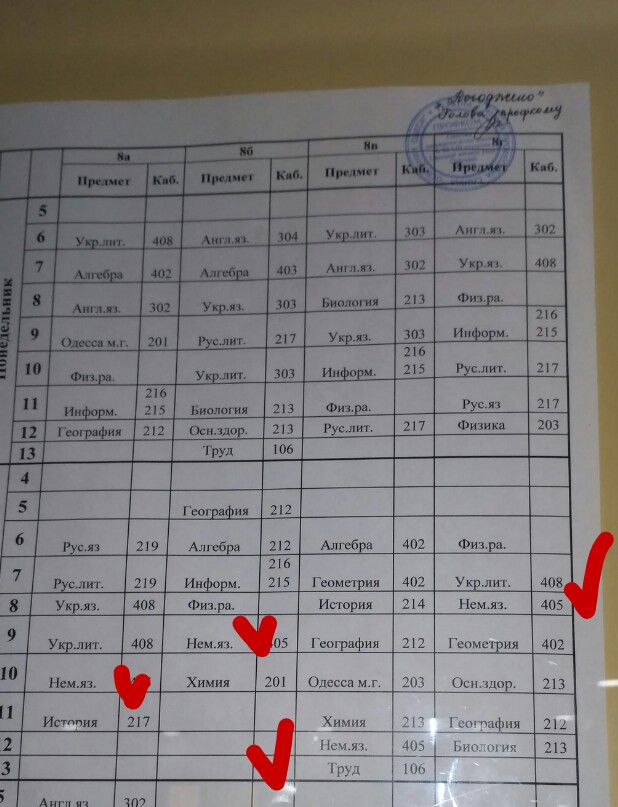 "Погоджено"
Голова профкому
8а 8б 8в 8г
Предмет Каб. Предмет Каб. Предмет Каб. Предмет Каб.
Понедельник
5
6 Укр.лит. 408 Англ.яз. 304 Укр.лит. 303 Англ.яз. 302
7 Алгебра 402 Алгебра 403 Англ.яз. 302 Укр.яз. 408
8 Англ.яз. 302 Укр.яз. 303 Биология 213 Физ.ра.
216
9 Одесса м.г. 201 Рус.лит. 217 Укр.яз. 303 Информ. 215
216
10 Физ.ра. Укр.лит. 303 Информ. 215 Рус.лит. 217
216
11 Информ. 215 Биология 213 Физ.ра. Рус.яз 217
12 География 212 Осн.здор. 213 Рус.лит. 217 Физика 203
13 Труд 106
4
5 География 212
6 Рус.яз 219 Алгебра 212 Алгебра 402 Физ.ра.
216
7 Рус.лит. 219 Информ. 215 Геометрия 402 Укр.лит. 408
8 Укр.яз. 408 Физ.ра. История 214 Нем.яз. 405
9 Укр.лит. 408 Нем.яз. 405 География 212 Геометрия 402
10 Нем.яз. Химия 201 Одесса м.г. 203 Осн.здор. 213
11 История 217 Химия 213 География 212
2 Нем.яз. 405 Биология 213
3 Труд 106
5 Англ.яз 302